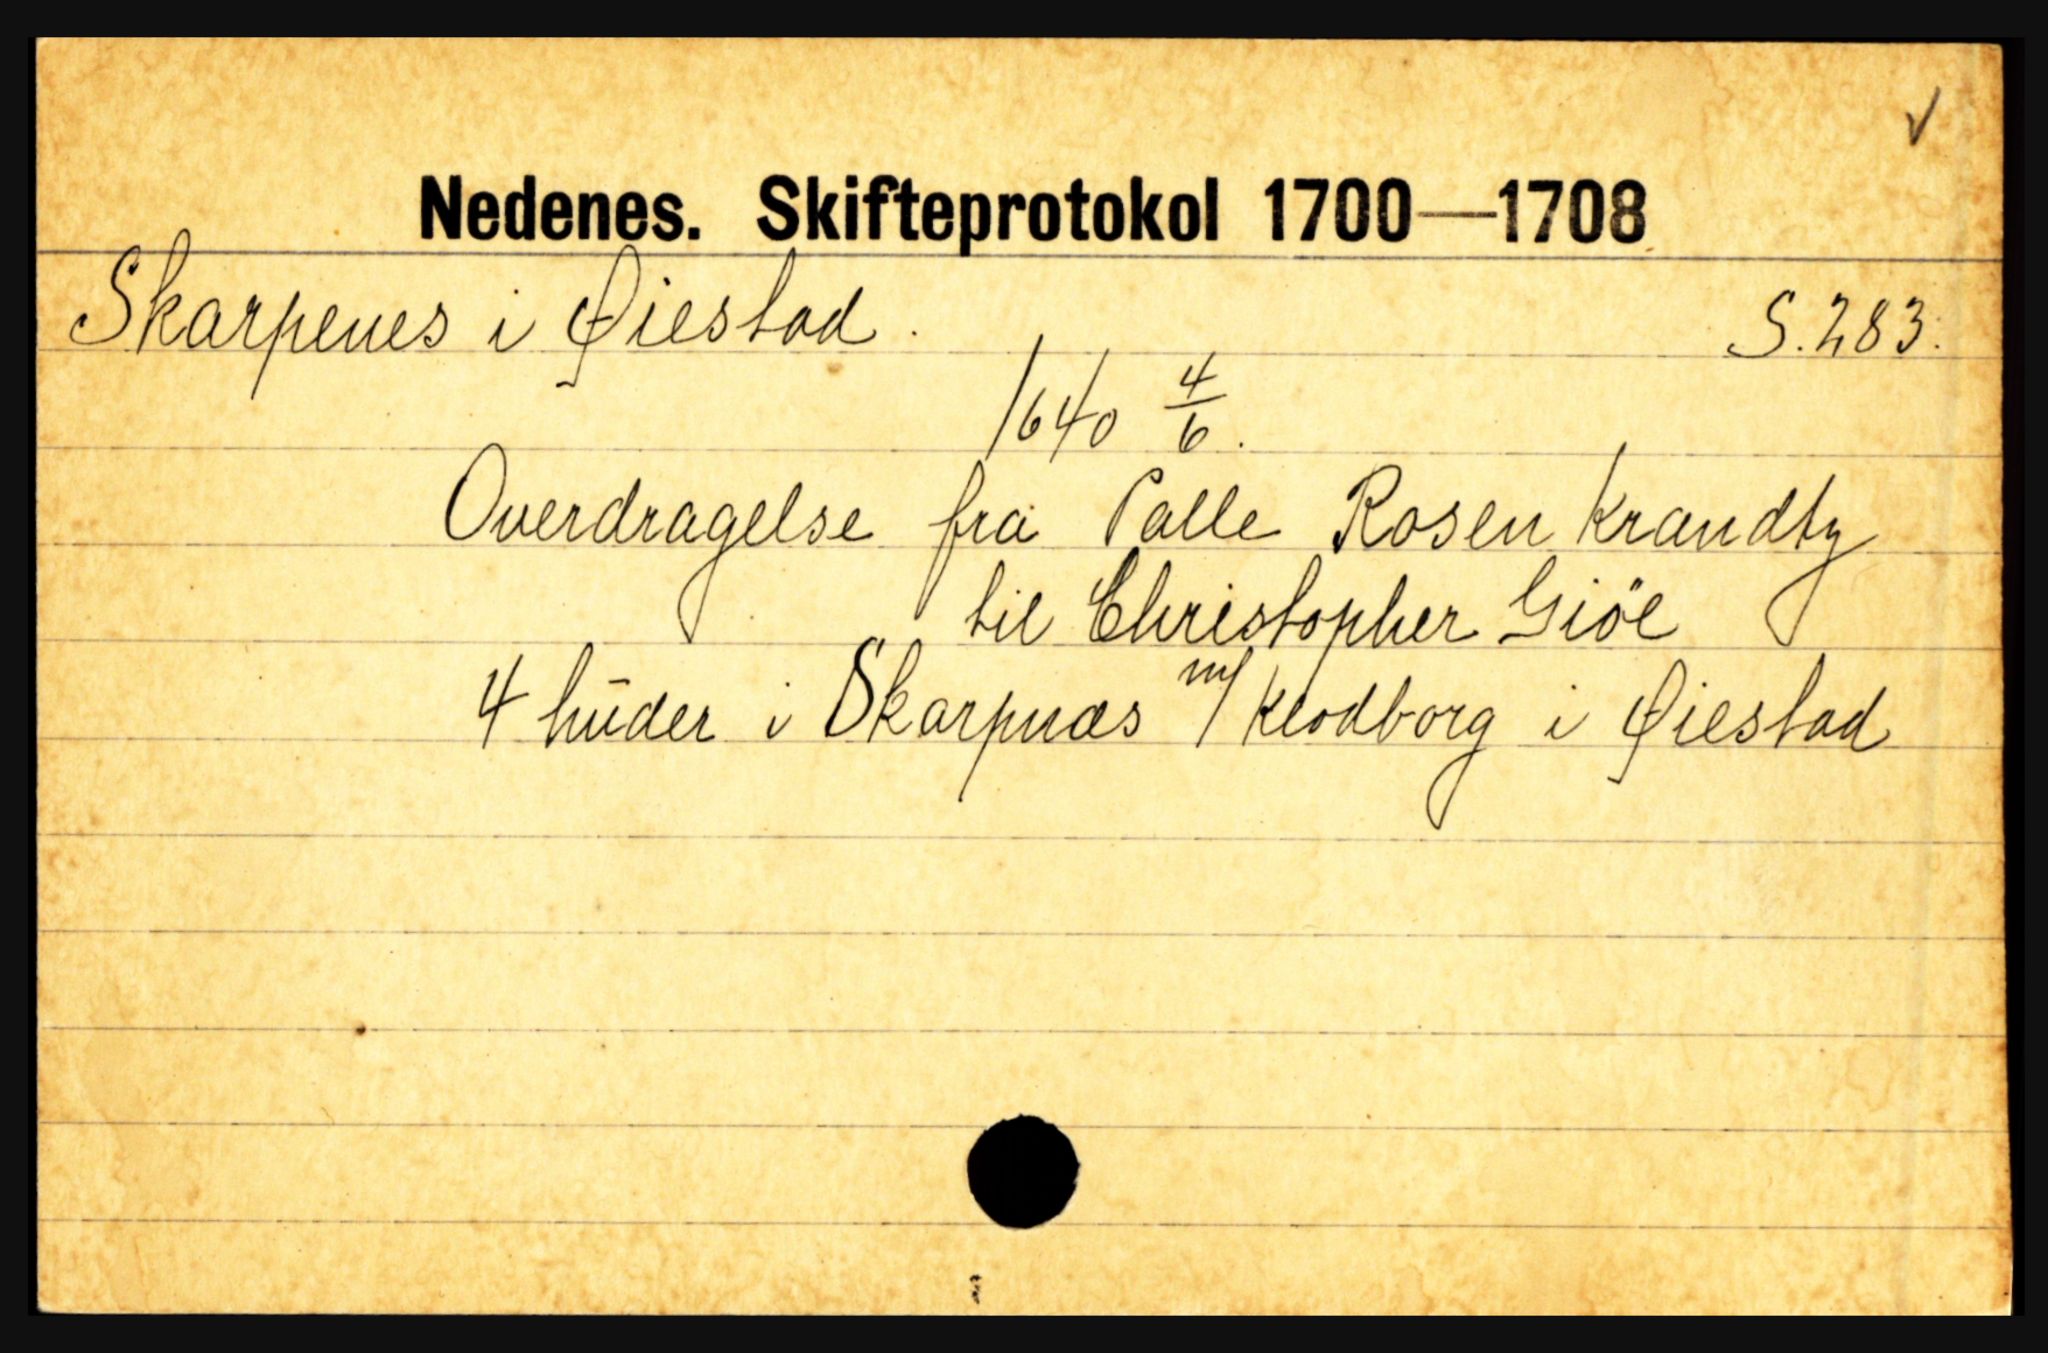 ✓
Nedenes. Skifteprotokol 1700—1708
Skarpenes i Øiestad. S. 283.
1640 4/6.
Overdragelse fra Palle Rosen krandtz
til Christopher Giöe
4 huder i Skarpnæs m/ Klodborg i Øiestad